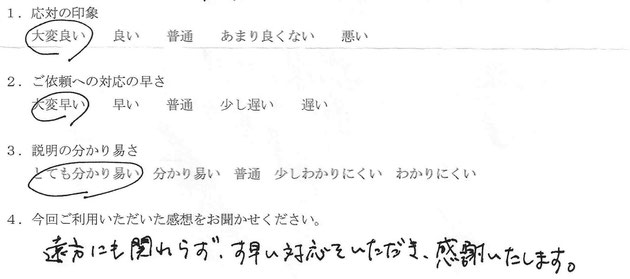 1．応対の印象
大変良い　良い　普通　あまり良くない　悪い
2．ご依頼への対応の早さ
大変早い　早い　普通　少し遅い　遅い
3．説明の分かり易さ
とても分かり易い　分かり易い　普通　少しわかりにくい　わかりにくい
4．今回ご利用いただいた感想をお聞かせください。
遠方にも関わらず、す早い対応をいただき、感謝いたします。